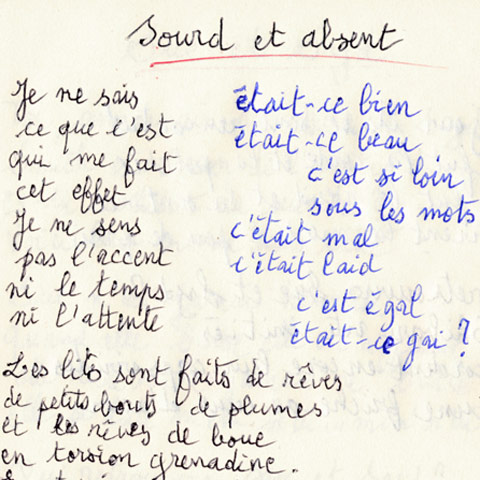 Sourd et absent
Je ne sais
ce que c'est
qui me fait
cet effet
Je ne sens
pas l'accent
ni le temps
ni l'attente
était-ce bien
était-ce beau
c'est si loin
sous les mots
c'était mal
c'était laid
c'est égal
était-ce gai ?
Les lits sont faits de rêves
de petits bouts de plumes
et les rêves de boue
en torsion grenadine.